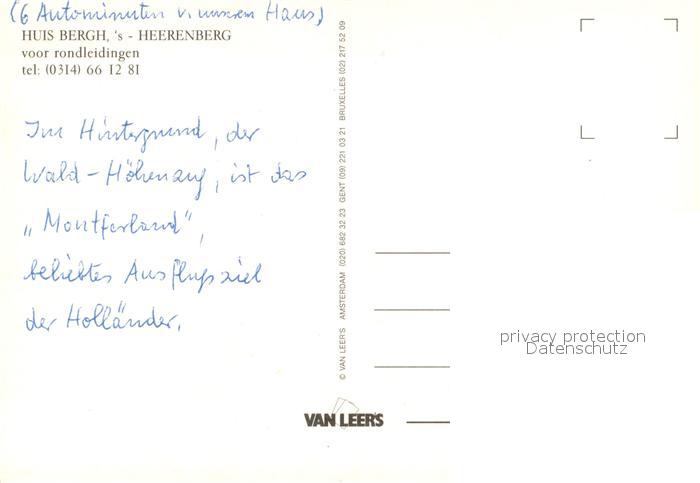 (6 Autominuten v. unserem Haus)
HUIS BERGH, 's - HEERENBERG
voor rondleidingen
tel: (0314) 66 12 81
Im Hintergrund, der
Wald-Höhenzug, ist das
„Montferland",
beliebtes Ausflugsziel
der Holländer.
© VAN LEER'S AMSTERDAM (020) 682 32 23 GENT (09) 221 03 21 BRUXELLES (02) 217 52 09
VAN LEER'S
privacy protection
Datenschutz